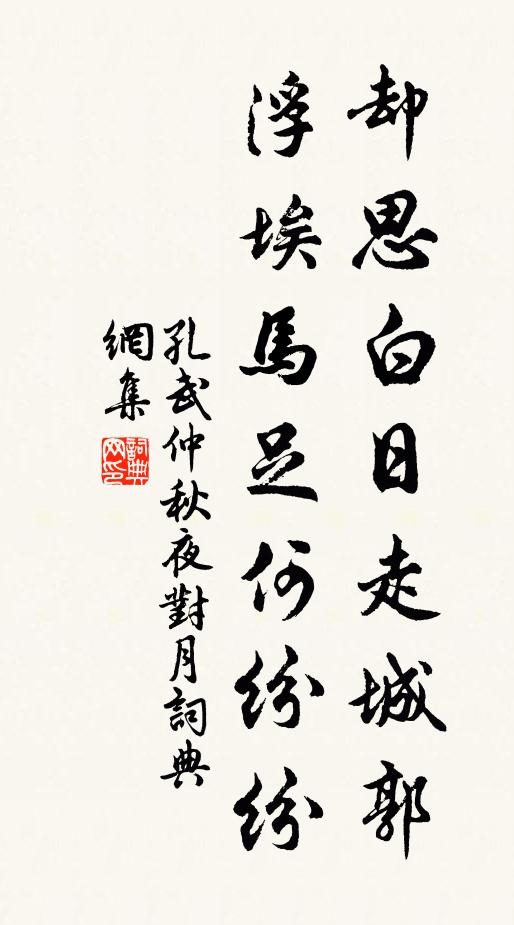 却思白日走城郭
浮埃馬足何紛紛
孔武仲秋夜對月詞典
網集
詞典
网印